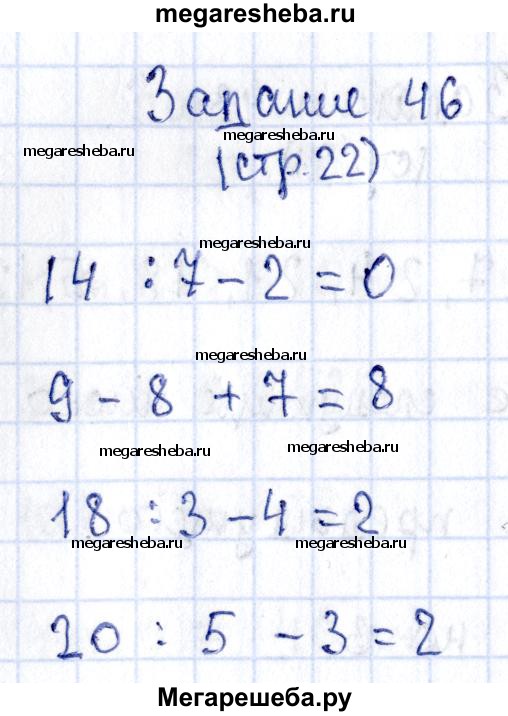 megaresheba.ru
Задание 46
megaresheba.ru
megaresheba.ru
(стр. 22)
megaresheba.ru
14 : 7 - 2 = 0
megaresheba.ru
9 - 8 + 7 = 8
megaresheba.ru
megaresheba.ru
18 : 3 - 4 = 2
megaresheba.ru
megaresheba.ru
20 : 5 - 3 = 2
Мегарешеба.ру